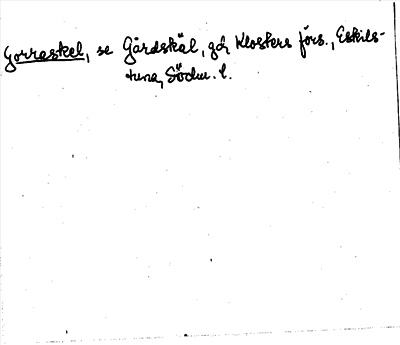 Gorraskel, se Gärdskäl, gd, Klosters förs., Eskils-
tuna, Södm. l.